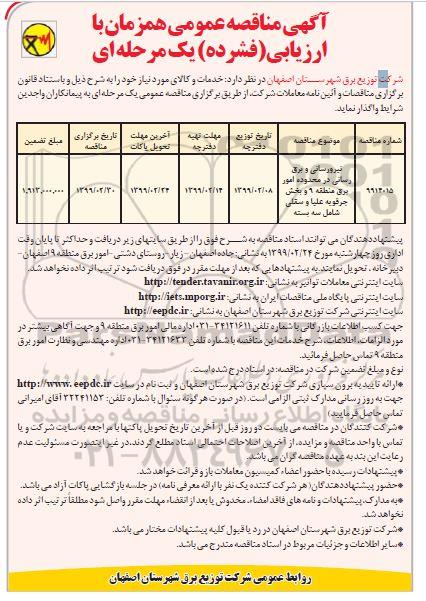 آگهی مناقصه عمومی همزمان با
ارزیابی (فشرده) یک مرحله ای
شرکت توزیع برق شهرستان اصفهان در نظر دارد: خدمات و کالای مورد نیاز خود را به شرح ذیل و باستناد قانون
برگزاری مناقصات و آئین نامه معاملات شرکت، از طریق برگزاری مناقصه عمومی یک مرحله ای به پیمانکاران واجدین
شرایط واگذار نماید.
شماره مناقصه موضوع مناقصه تاریخ توزیع دفترچه مهلت تهیه دفترچه آخرین مهلت تحویل پاکات تاریخ برگزاری مناقصه مبلغ تضمین
۹۹۱۴۰۱۵ نیرورسانی و برق رسانی در محدوده امور برق منطقه ۹ و بخش جرقویه علیا و سفلی شامل سه بسته ۱۳۹۹/۰۲/۰۸ ۱۳۹۹/۰۲/۱۴ ۱۳۹۹/۰۲/۲۴ ۱۳۹۹/۰۲/۳۰ ۱,۹۱۳,۰۰۰,۰۰۰
پیشنهاددهندگان می توانند اسناد مناقصه به شرح فوق را از طریق سایتهای زیر دریافت و حداکثر تا پایان وقت
اداری روز چهارشنبه مورخ ۱۳۹۹/۰۲/۲۴ به نشانی: جاده اصفهان - زیار - روستای دشتی - امور برق منطقه ۹ اصفهان -
دبیرخانه، تحویل نمایند. به پیشنهادهایی که بعد از مهلت مقرر در فوق دریافت شود ترتیب اثر داده نخواهد شد.
سایت اینترنتی معاملات توانیر به نشانی: http://tender.tavanir.org.ir
سایت اینترنتی پایگاه ملی مناقصات ایران به نشانی: http://iets.mporg.ir
سایت اینترنتی شرکت توزیع برق شهرستان اصفهان به نشانی: http://eepdc.ir
جهت کسب اطلاعات بازرگانی با شماره تلفن ۳۴۱۲۱۶۱۱-۰۳۱ اداره مالی امور برق منطقه ۹ و جهت آگاهی بیشتر در
مورد الزامات، اطلاعات، شرح خدمات این مناقصه با شماره تلفن ۳۴۱۲۱۶۳۳-۰۳۱ اداره مهندسی و نظارت امور برق
منطقه ۹ تماس حاصل فرمائید.
نوع و مبلغ تضمین شرکت در مناقصه: در اسناد درج شده است.
*ارائه تاییدیه برون سپاری شرکت توزیع برق شهرستان اصفهان و ثبت نام در سایت http://www.eepdc.ir
جهت به روز رسانی مدارک ثبتی الزامی است. (در صورت هرگونه سئوال با شماره تلفن: ۳۲۲۴۱۱۵۲ آقای امیراتی
تماس حاصل فرمایید)
*شرکت کنندگان در مناقصه می بایست دو روز قبل از آخرین تاریخ تحویل پاکتها با مراجعه به سایت شرکت و یا
تماس با واحد مناقصه و مزایده، از آخرین اصلاحات احتمالی اسناد مطلع گردند. در غیر اینصورت مسئولیت عدم
رعایت این بند به عهده مناقصه گران می باشد.
*پیشنهادات رسیده با حضور اعضاء کمیسیون معاملات باز و قرائت خواهد شد.
*حضور پیشنهاددهندگان (هر شرکت کننده یک نفر با ارائه معرفی نامه) در جلسه بازگشایی پاکات آزاد می باشد.
*به مدارک، پیشنهادات و نامه های فاقد امضاء، مخدوش یا بعد از انقضاء مهلت مقرر واصل شود مطلقاً ترتیب اثر داده
نخواهد شد.
*شرکت توزیع برق شهرستان اصفهان در رد یا قبول کلیه پیشنهادات مختار می باشد.
*سایر اطلاعات و جزئیات مربوط در اسناد مناقصه مندرج می باشد.
روابط عمومی شرکت توزیع برق شهرستان اصفهان